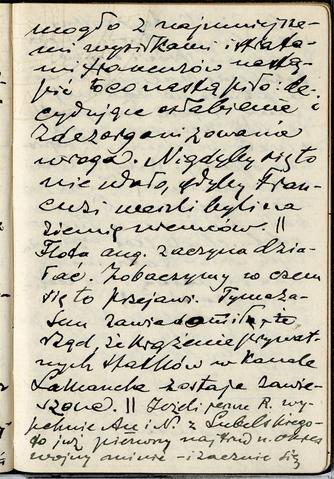 mogło z najmniejsze-
mi wysiłkami i strata-
mi francuzów nastą-
pić to co nastąpiło: de-
cydujące osłabienie i
zdezorganizowanie
wroga. Nigdyby się to
nie udało, gdyby Fran-
cuzi weszli byli na
ziemię niemców. ||
Flota ang. zaczyna dzia-
łać. Zobaczymy w czem
się to przejawi. Tymcza-
sem zawiadomiła, że
rząd, że krążenie prywat-
nych statków w Kanale
Lamanche zostaje zawie-
szone. || Jeżeli pewne R. wy-
pchnie A i N. z Lubelskiego
to już pierwszy najtrud n. okres
wojny minie - i zacznie się